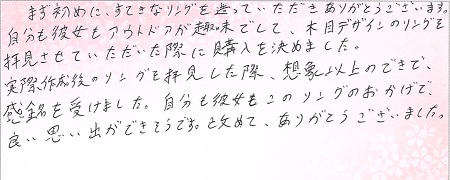 まず初めに、すてきなリングを造っていただきありがとうございます。
自分も彼女もアウトドアが趣味でして、木目デザインのリングを
拝見させていただいた際に購入を決めました。
実際作成後のリングを拝見した際、想象以上のできで、
感銘を受けました。自分も彼女もこのリングのおかげで、
良い思い出ができそうです。改めて、ありがとうございました。